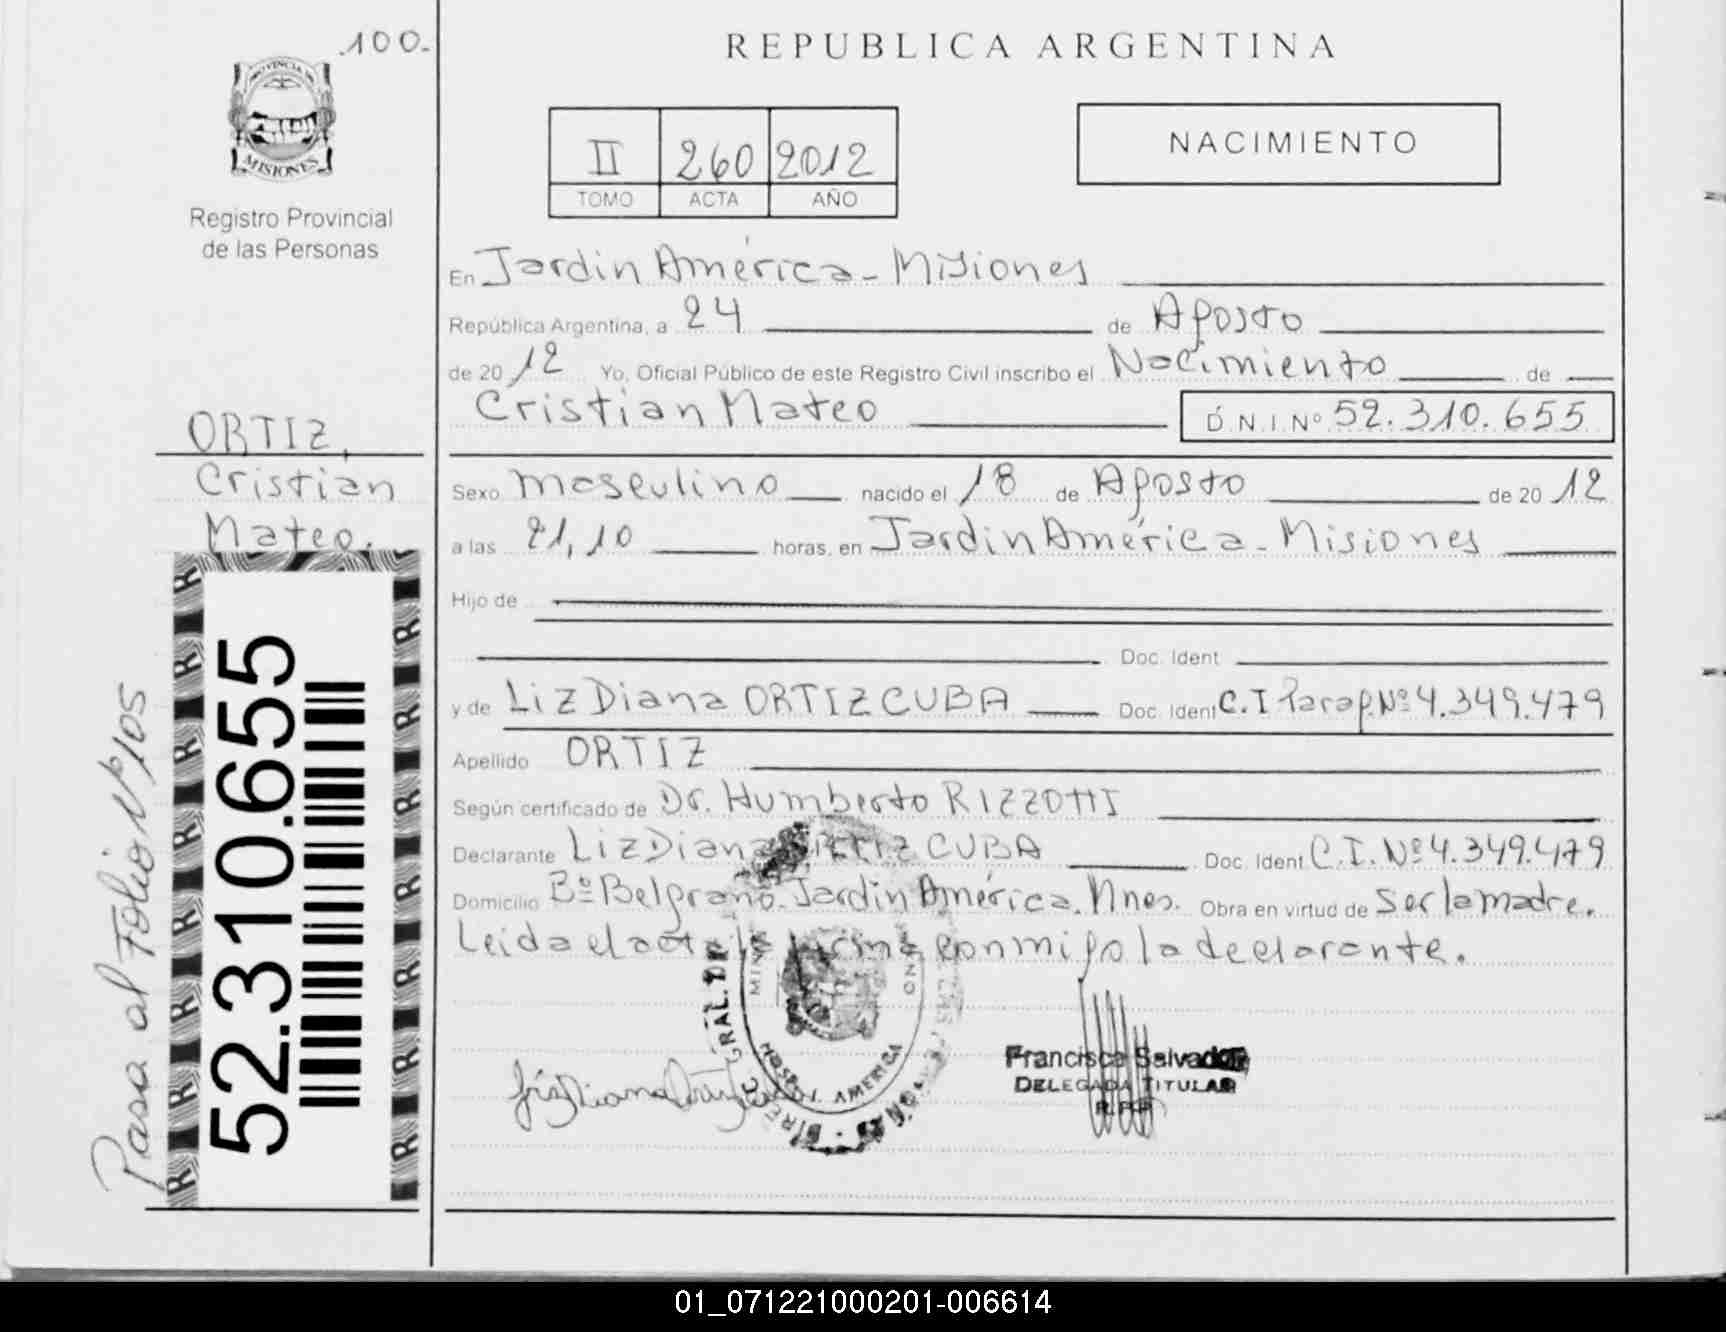 100.
PROVINCIA DE
MISIONES
Registro Provincial
de las Personas
ORTIZ,
Cristian
Mateo.
52.310.655
Pasa al Folio Nº 105
REPUBLICA ARGENTINA
II 260 2012
TOMO ACTA AÑO
NACIMIENTO
En Jardin América - Misiones
República Argentina, a 24 de Agosto
de 20 12 Yo, Oficial Público de este Registro Civil inscribo el Nacimiento de
Cristian Mateo D.N.I. Nº 52.310.655
Sexo masculino nacido el 18 de Agosto de 20 12
a las 21,10 horas, en Jardin América - Misiones
Hijo de
Doc. Ident
y de Liz Diana ORTIZ CUBA Doc. Ident C.I Parag. Nº 4.349.479
Apellido ORTIZ
Según certificado de Dr. Humberto RIZZOTTI
Declarante Liz Diana ORTIZ CUBA Doc. Ident C.I. Nº 4.349.479
Domicilio Bº Belgrano. Jardin América. Mnes. Obra en virtud de Ser la madre.
Leida el acta la firma conmigo la declarante.
Liz Diana Ortiz
GRAL. DE
AMERICA
Francisca Salvador
DELEGADA TITULAR
R.P.P
01_071221000201-006614